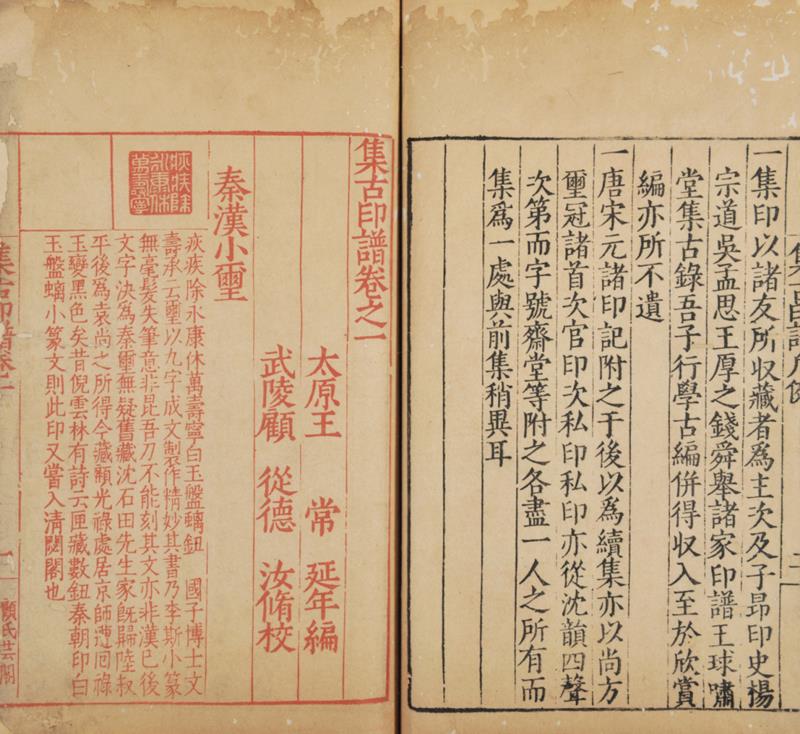 一集印以諸友所収藏者爲主次及子昂印史楊
宗道吳孟思王厚之錢舜舉諸家印譜王球嘯
堂集古錄吾子行學古編併得収入至於欣賞
編亦所不遺
一唐宋元諸印記附之于後以爲續集亦以尚方
璽冠諸首次官印次私印私印亦從沈韻四聲
次第而字號齋堂等附之各盡一人之所有而
集爲一處與前集稍異耳
集古印譜卷之一
太原王 常 延年編
武陵顧 從德 汝脩校
秦漢小璽
疢疾除永康休萬壽寧
疢疾除永康休萬壽寧白玉盤螭鈕 國子博士文
壽承云璽以九字成文製作精妙其書乃李斯小篆
無毫髮失筆意非昆吾刀不能刻其文亦非漢已後
文字決爲秦璽無疑舊藏沈石田先生家旣歸陸叔
平後爲袁尚之所得今藏顧光祿處居京師遭囘祿
玉變黑色矣昔倪雲林有詩云匣藏數鈕秦朝印白
玉盤螭小篆文則此印又嘗入清閟閣也
集古印譜卷一
一
顧氏芸閣